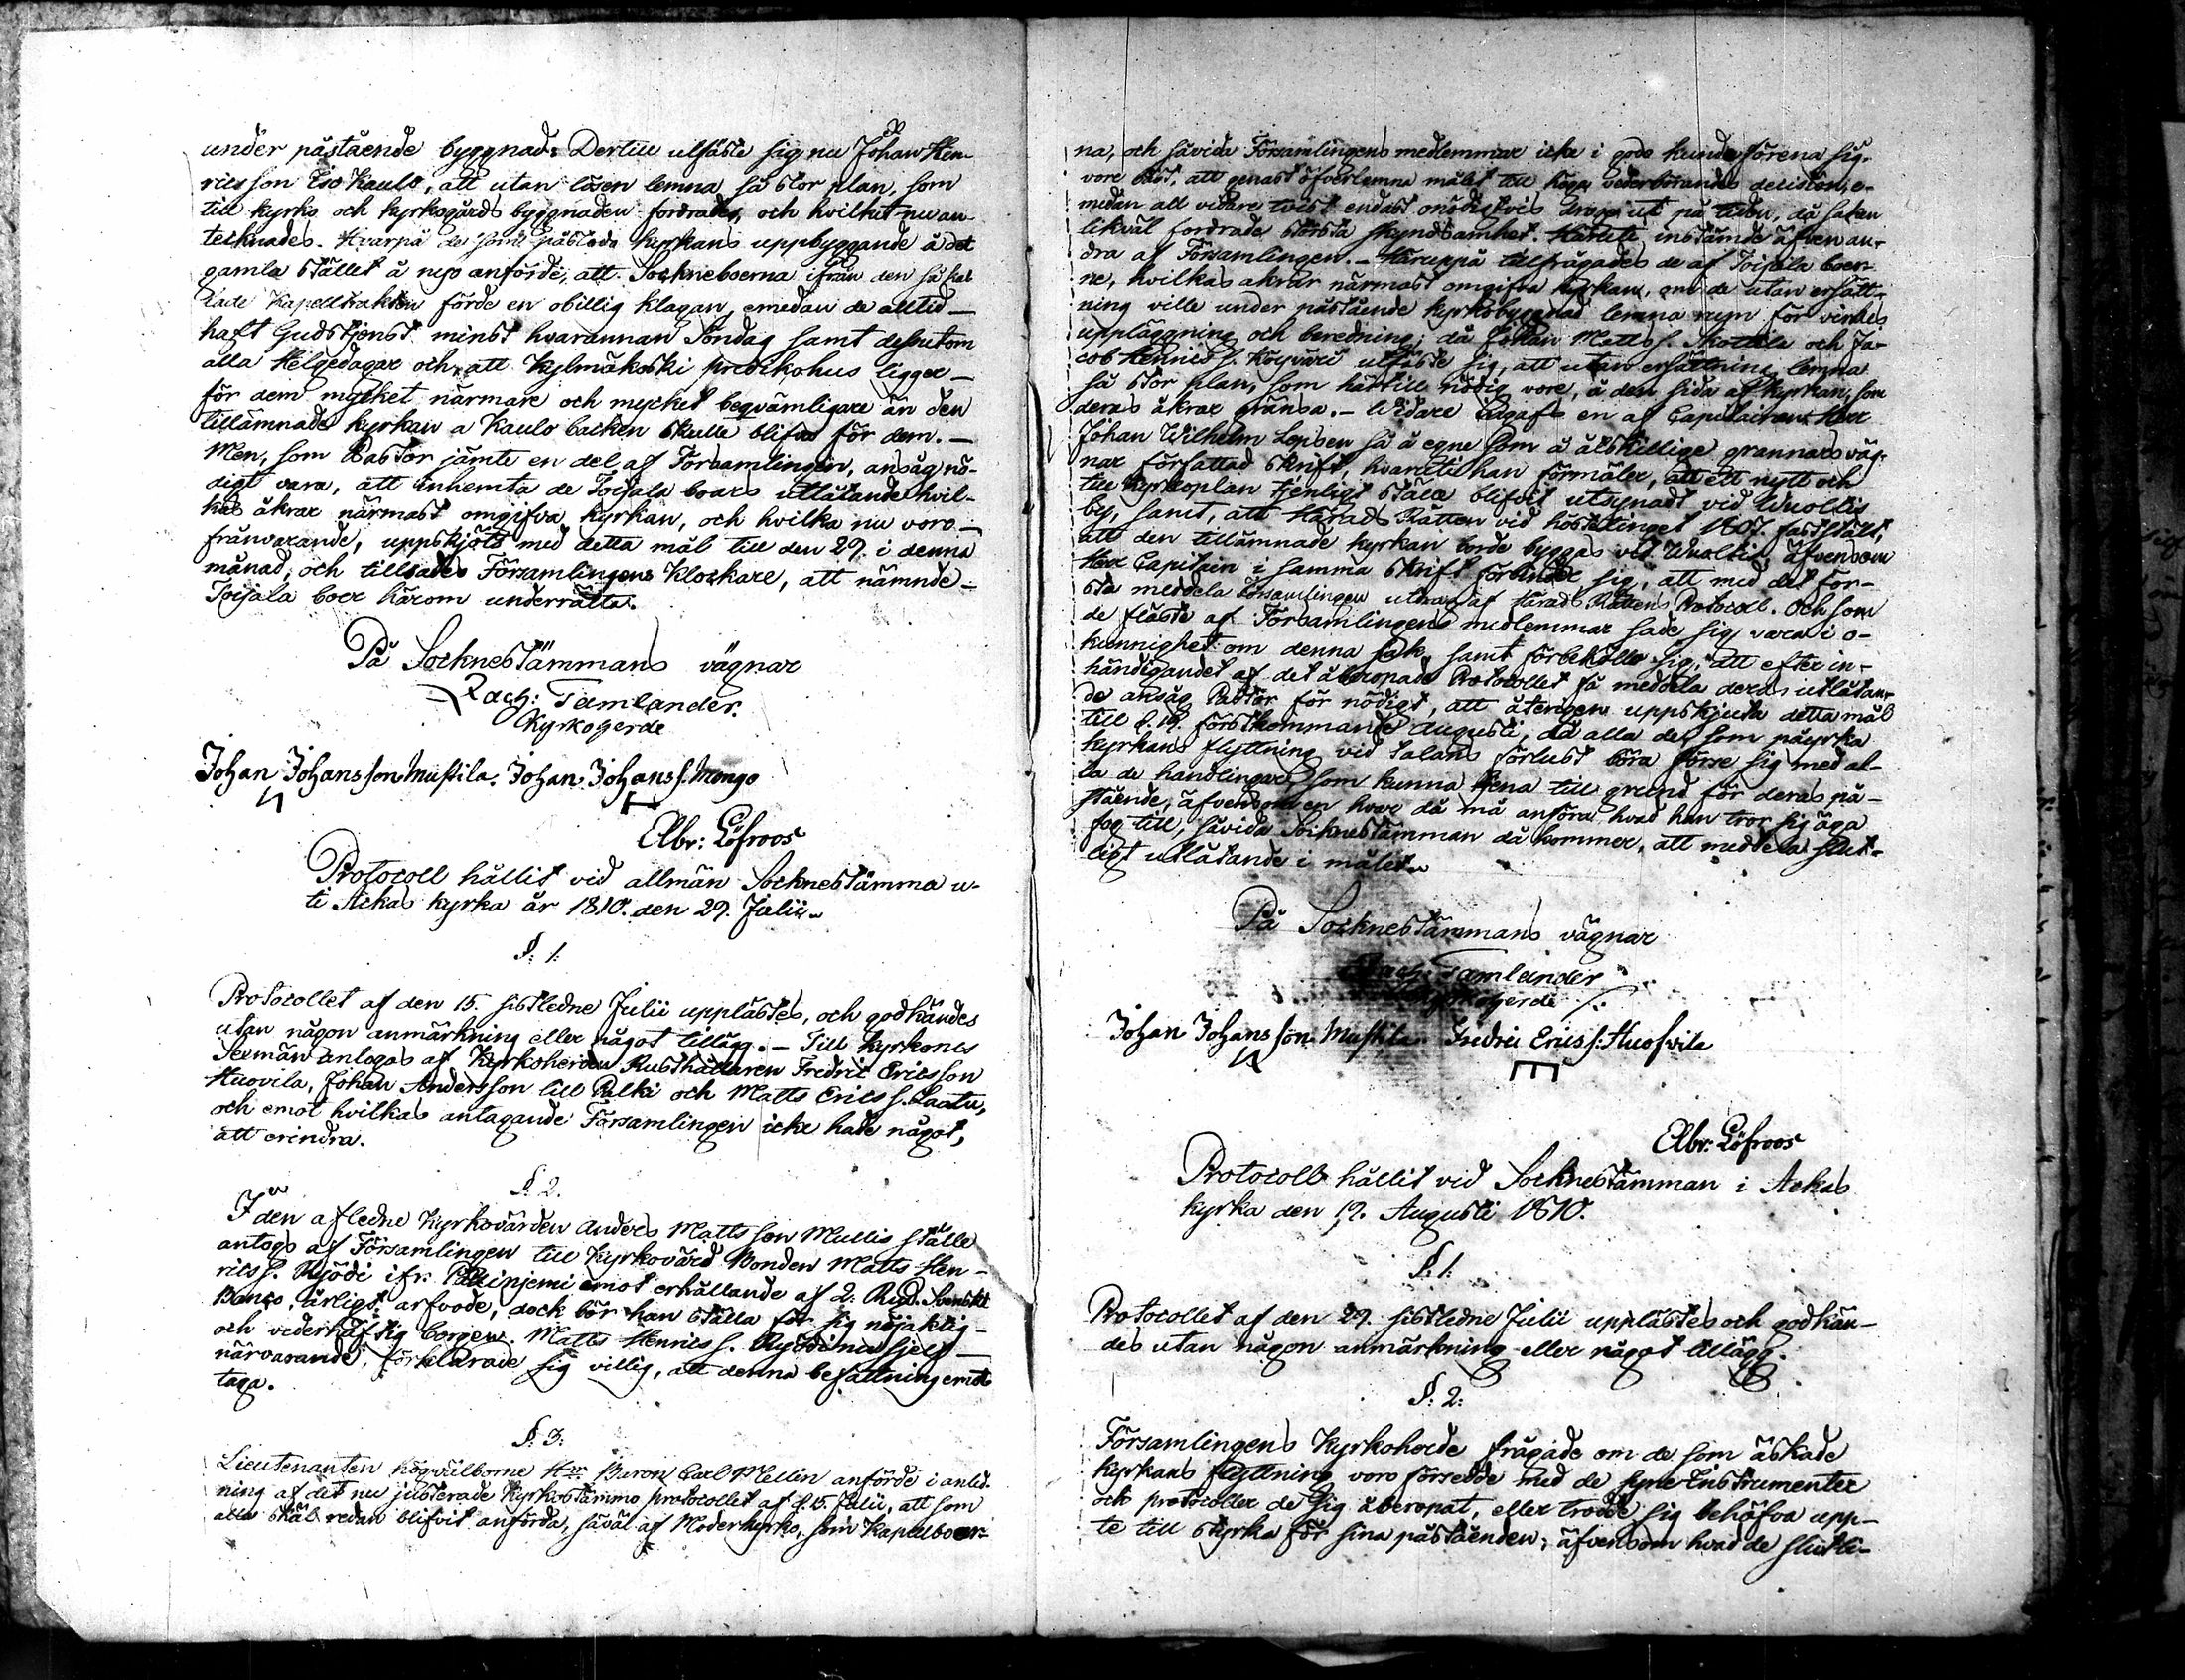 under påstående byggnad. Dertill utfäste sig nu Johan Hen-
ricsson Iso Kaulo, att utan lösen lemna så stor plan, som
till kyrko och kyrkogårds byggnaden fordrades, och hvilket nu an-
tecknades. Hvarpå de som påstodo kyrkans uppbyggande å det
gamla stället å nyo anförde, att Sockneboerna ifrån den så kal-
lade Kapelltrakten förde en obillig klagan, emedan de alltid
haft Gudstjenst minst hvarannan Söndag samt dessutom
alla Helgedagar och att Kylmäkoski predikohus ligger
för dem mycket närmare och mycket beqvämligare än den
tillämnade kyrkan a Kaulo backen skulle blifva för dem. —
Men, som Pastor jämte en del af Församlingen, ansåg nö-
digt vara, att inhemta de Toijala boars utlåtande hvil-
kas åkrar närmast omgifva kyrkan, och hvilka nu voro
frånvarande, uppskjöts med detta mål till den 29. i denna
månad, och tillsades Församlingens Klockare, att nämnde
Toijala boer härom underrätta.
På Socknestämmans vägnar
Zach: Tamlander.
Kyrkogerde
Johan Johansson Mustila. Johan Johanss. Mongo
Elbr: Löfroos
Protocoll hållit vid allmän Socknestämma u-
ti Ackas kyrka år 1810. den 29. Julii.
§. 1.
Protocollet af den 15. sistledne Julii upplästes, och godkändes
utan någon anmärkning eller något tillägg. — Till kyrkones
Sexmän antogos af Kyrkoherden Rusthållaren Fredric Ericsson
Huovila, Johan Andersson lill Palki och Matts Ericss. Laatu,
och emot hvilkas antagande Församlingen icke hade något,
att erindra.
§. 2.
I den afledne Kyrkovärden Anders Mattsson Mullis ställe
antogs af Församlingen till Kyrkovärd Bonden Matts Hen-
ricss. Ryödi ifr. emot erhållande af 2: Rud. Svenskt
Banco, årligt arfvode, dock bör han ställa för sig nöjaktig
och vederhäftig borgen. Matts Henricss. Ryödi nu sjelf
närvarande, förklarade sig villig, att denna befattning emot
taga.
§. 3.
Lieutenanten högvälborne Hr Baron Carl Mellin anförde i anled-
ning af det nu justerade Kyrkostämmo protocollet af d. 15. Julii, att som
alla skäl redan blifvit anförda, såväl af Moderkyrko, som Kapellboer-
na, och såvida Församlingens medlemmar icke i godo kunde förena sig
vore bäst, att genast öfverlemna målet till höga vederbörandes decision, e-
medan all vidare tvist endast onödigtvis drog ut på tiden, då saken
likväl fordrade största skyndsamhet. Härutе instämde äfven an-
dra af Församlingen. — Häruppå tillfrågades de af Toijala boer-
ne, hvilkas åkrar närmast omgifva kyrkan, om de utan ersätt-
ning ville under påstående kyrkobyggnad lemna rum för virkes
uppläggning och beredning; då Johan Mattss. Skottila och Ja-
cob Henricss. utfäste sig, att utan ersättning lemna
så stor plan, som härtill nödig vore, å den sida af kyrkan, som
deras åkrar gränsa. — Widare ingafs en af Capitainen Herr
Johan Wilhelm så å egne som å åtskillige grannars väg-
nar författad skrift, hvaruti han förmäler, att ett nytt och
till Kyrkoplan tjenligt ställe blifvit utsynadt vid Wuollis
by, samt, att Härads Rätten vid hösttinget 1807. fastställt,
att den tillämnade kyrkan borde byggas vid Wuollis, äfvensom
Herr Capitain i samma skrift förbinder sig, att med det för-
sta meddela Församlingen utdrag af Härads Rättens Protocoll. Och som
de fläste af Församlingens medlemmar sade sig vara i o-
kunnighet om denna sak, samt förbehöllo sig, att efter in-
händigandet af det åberopade Protocollet få meddela deras utlåtan-
de ansåg Pastor för nödigt, att återigen uppskjuta detta mål
till d. 19. förstkommande Augusti, då alla de som påyrka
kyrkans flyttning vid talans förlust böra förse sig med al-
la de handlingar, som kunna tjena till grund för deras på-
stående, äfvensom en hvar då må anföra hvad han tror sig äga
fog till, såvida Socknestämman då kommer, att meddela slut-
ligt utlåtande i målet.
På Socknestämmans vägnar
Zach: Tamlander
Kyrkogerde
Johan Johansson Mustila. Fredric Ericss: Huofwila
Elbr: Löfroos
Protocoll hållit vid Socknestämman i Ackas
kyrka den 19. Augusti 1810.
§. 1.
Protocollet af den 29. sistledne Julii upplästes och godkän-
des utan någon anmärkning eller något tillägg.
§. 2.
Församlingens Kyrkoherde frågade om de som äskade
kyrkans flyttning voro försedde med de syne Instrumenter
och protocoller de sig åberopat, eller trodde sig behöfva upp-
te till styrka för sina påståenden; äfvensom hvad de slutli-